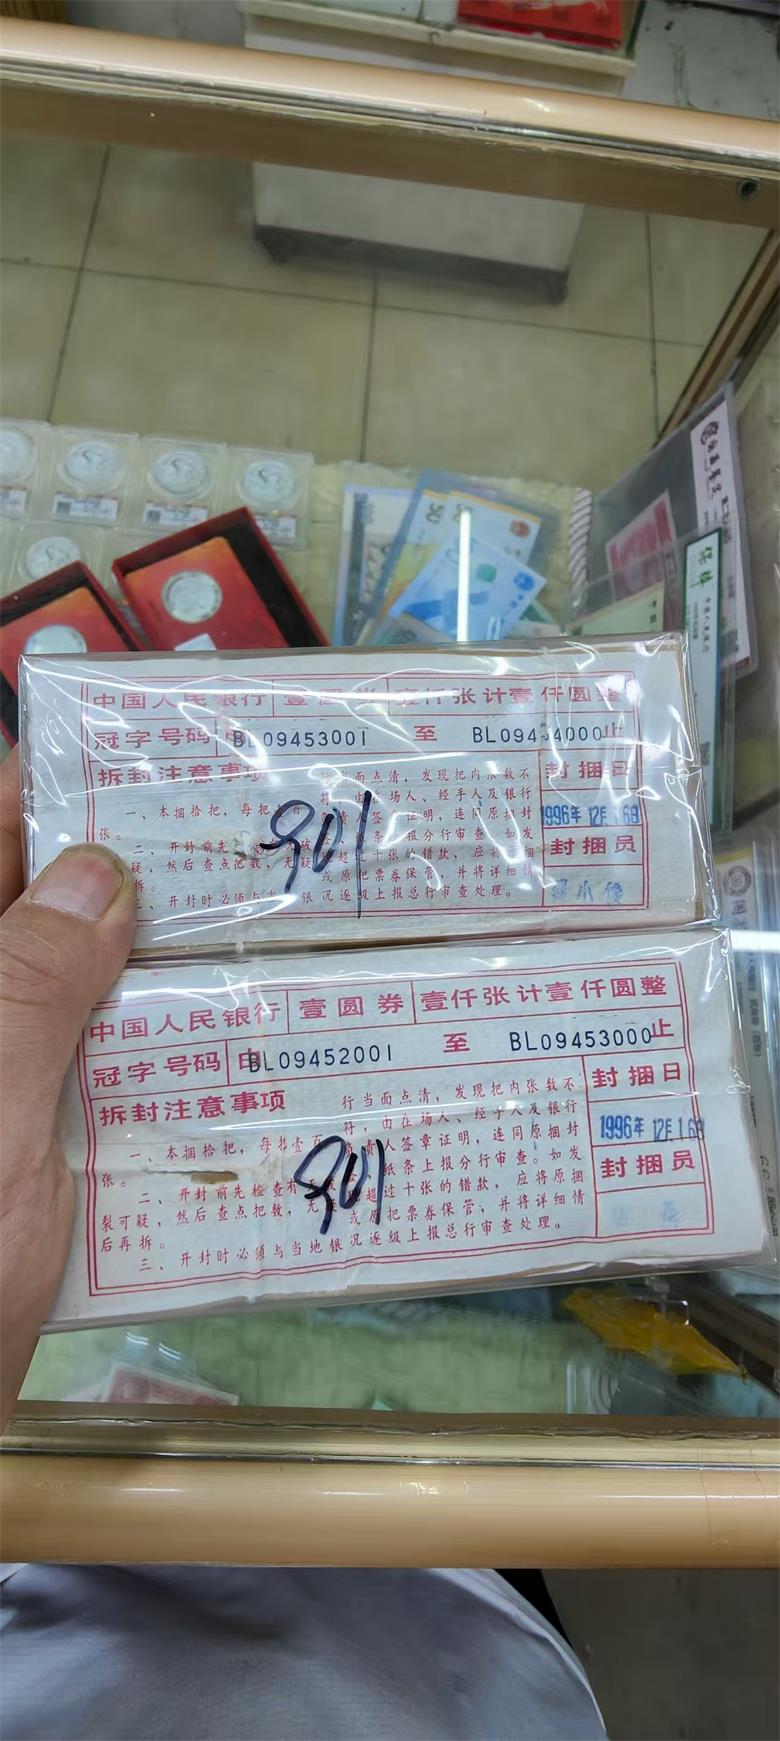 中国人民银行 壹圆券 壹仟张计壹仟圆整
冠字号码 BL09453001 至 BL09454000止
拆封注意事项
一、本捆拾把，每把壹百
张。
二、开封前先
疑，然后查点把数，无
拆。
三、开封时必须与当 银
行当面点清，发现把内张数不
符，由在场人、经手人及银行
责人签 证明，连同原捆封
条 报分行审查。如发
超过十张的错款，应将原捆
或原把票券保管，并将详细情
况逐级上报总行审查处理。
封捆日
1996年 12月16日
封捆员
901
中国人民银行 壹圆券 壹仟张计壹仟圆整
冠字号码 BL09452001 至 BL09453000止
拆封注意事项
一、本捆拾把，每把壹百
张。
二、开封前先检查有
裂可疑，然后查点把数，无
后再拆。
三、开封时必须与当地银
行当面点清，发现把内张数不
符，由在场人、经手人及银行
责人签章证明，连同原捆封
纸条上报分行审查。如发
超过十张的错款，应将原捆
或原把票券保管；并将详细情
况逐级上报总行审查处理。
封捆日
1996年 12月16日
封捆员
901